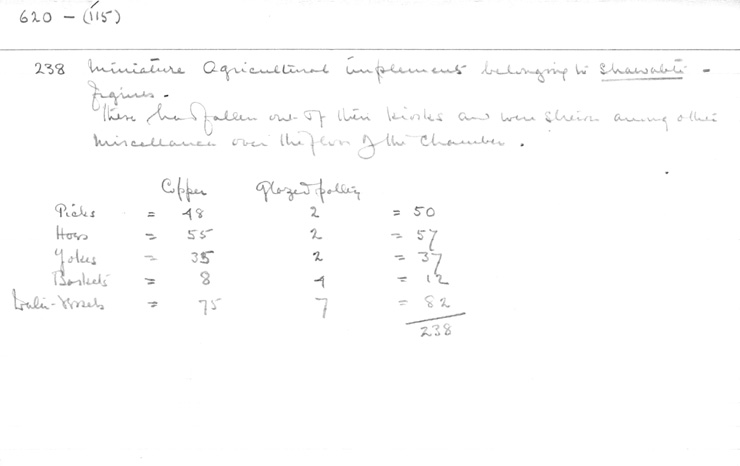 620 - (115)
238 Miniature Agricultural implements belonging to Shawabti -
figures.
These had fallen out of their kiosks and were strewn among other
miscellanea over the floor of the Chamber.
Copper Glazed pottery
Picks = 48 2 = 50
Hoes = 55 2 = 57
Yokes = 35 2 = 37
Baskets = 8 4 = 12
Water-Vessels = 75 7 = 82
238